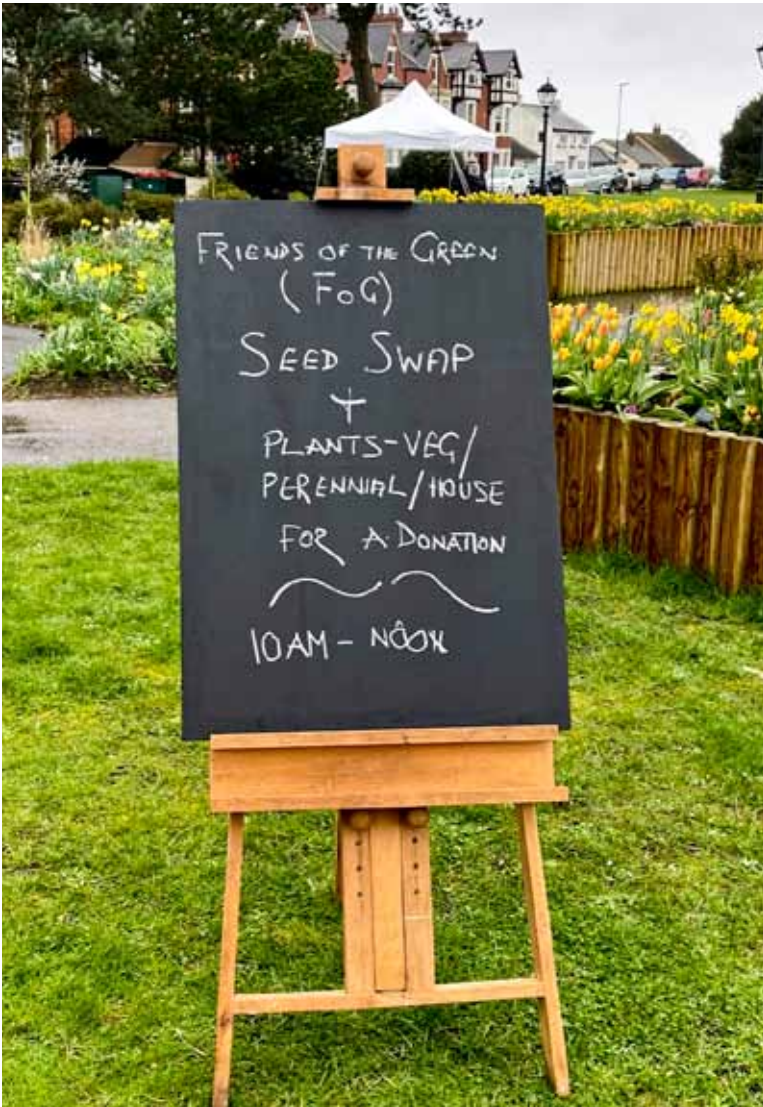 FRIENDS OF THE GREEN
(FoG)
SEED SWAP
+
PLANTS-VEG/
PERENNIAL/HOUSE
FOR A DONATION
10AM - NOON